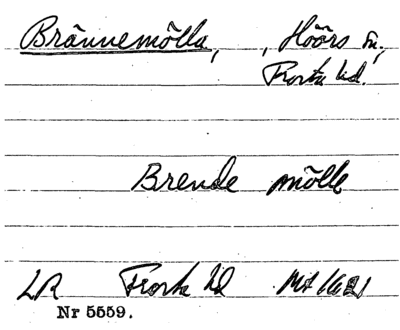 Brännemölla, , Höörs sn,
Frosta hd.
Brende mölle
LR Frosta hd
Nr 5559.